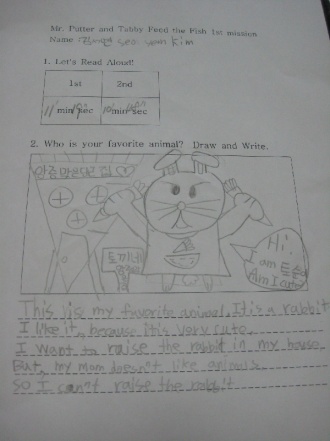 Mr. Putter and Tabby Feed the Fish 1st mission
Name 김서연 seo yeon kim
1. Let's Read Aloud!
1st 2nd
11 min sec 10 min sec
2. Who is your favorite animal? Draw and Write.
Hi!
I am
Am I cute
This is my favorite animal. It is a rabbit
I like it, because it's very cute.
I want to raise the rabbit in my house.
But, my mom doesn't like animals.
So I can't raise the rabbit